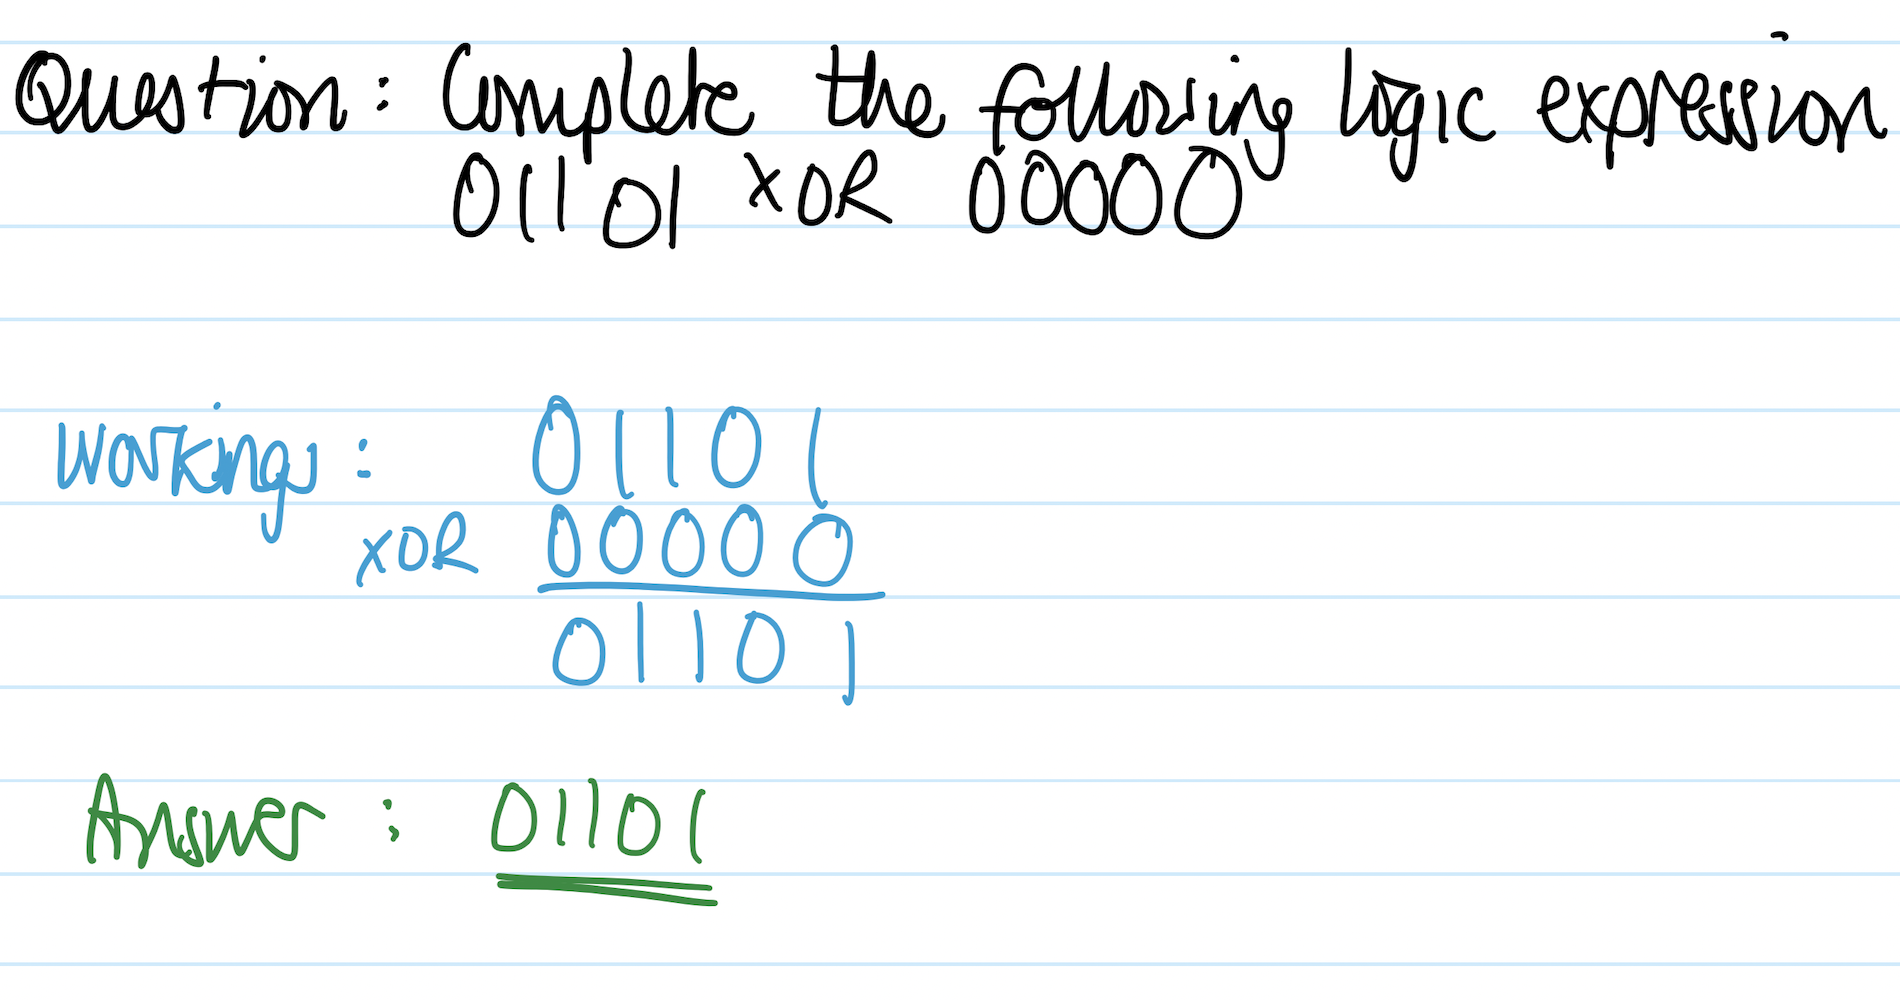 Question: Complete the following logic expression
01101 XOR 00000
Workings: 01101
XOR 00000
01101
Answer: 01101